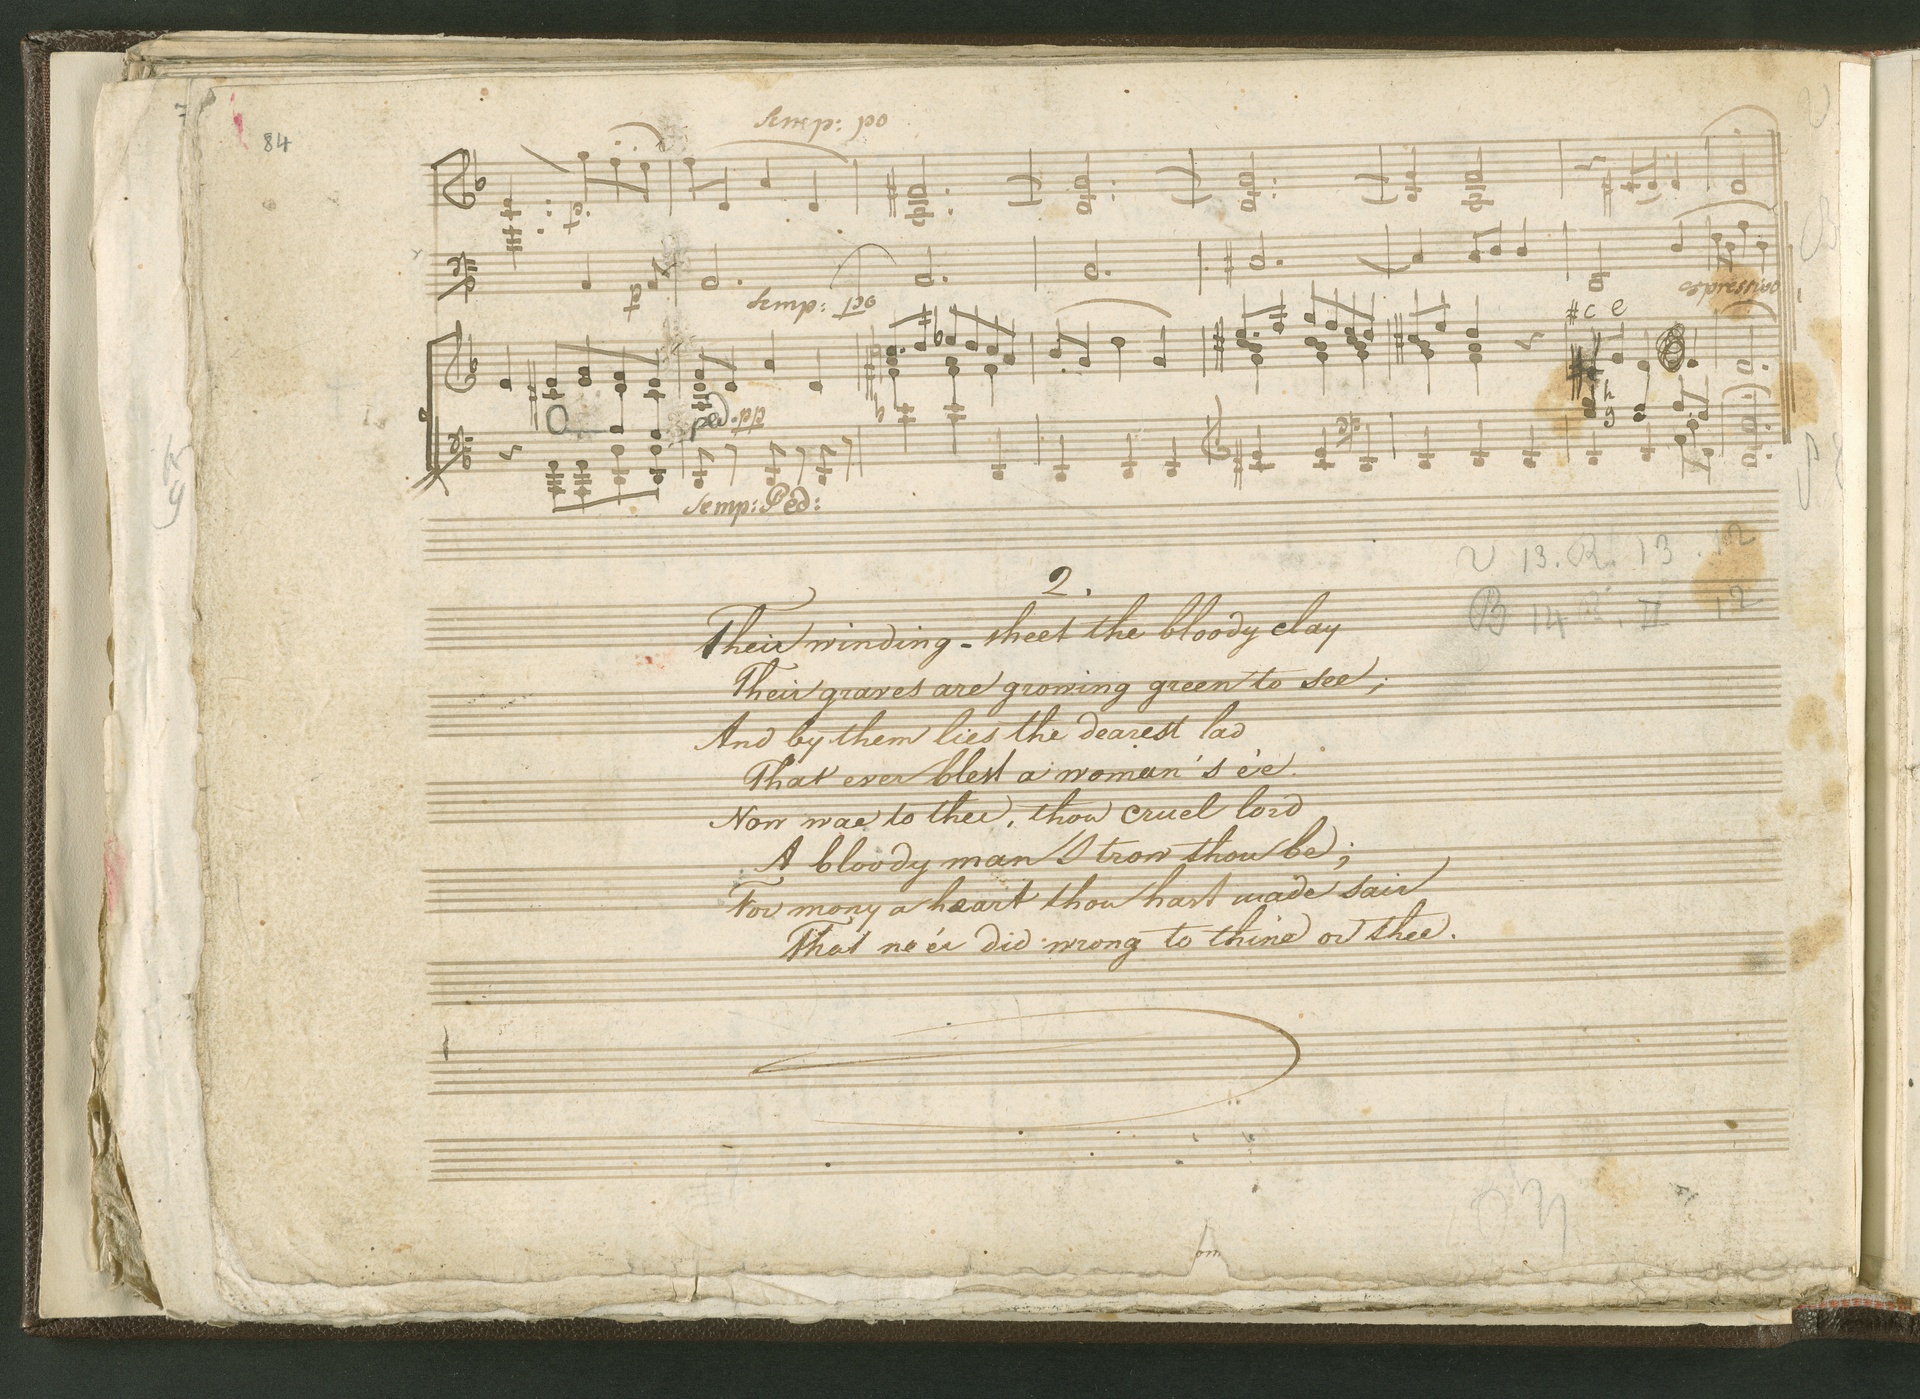 84
semp: po
semp: po
espressivo
#c e
ped:
h
g
semp: Ped:
V 13. R. 13 . 12
B 14 R. II 12
2.
Their winding-sheet the bloody clay
Their graves are growing green to see;
And by them lies the dearest lad
That ever blest a woman's e'e.
Now wae to thee, thou cruel lord
A bloody man I trow thou be;
For mony a heart thou hast made sair
That ne'er did wrong to thine or thee.